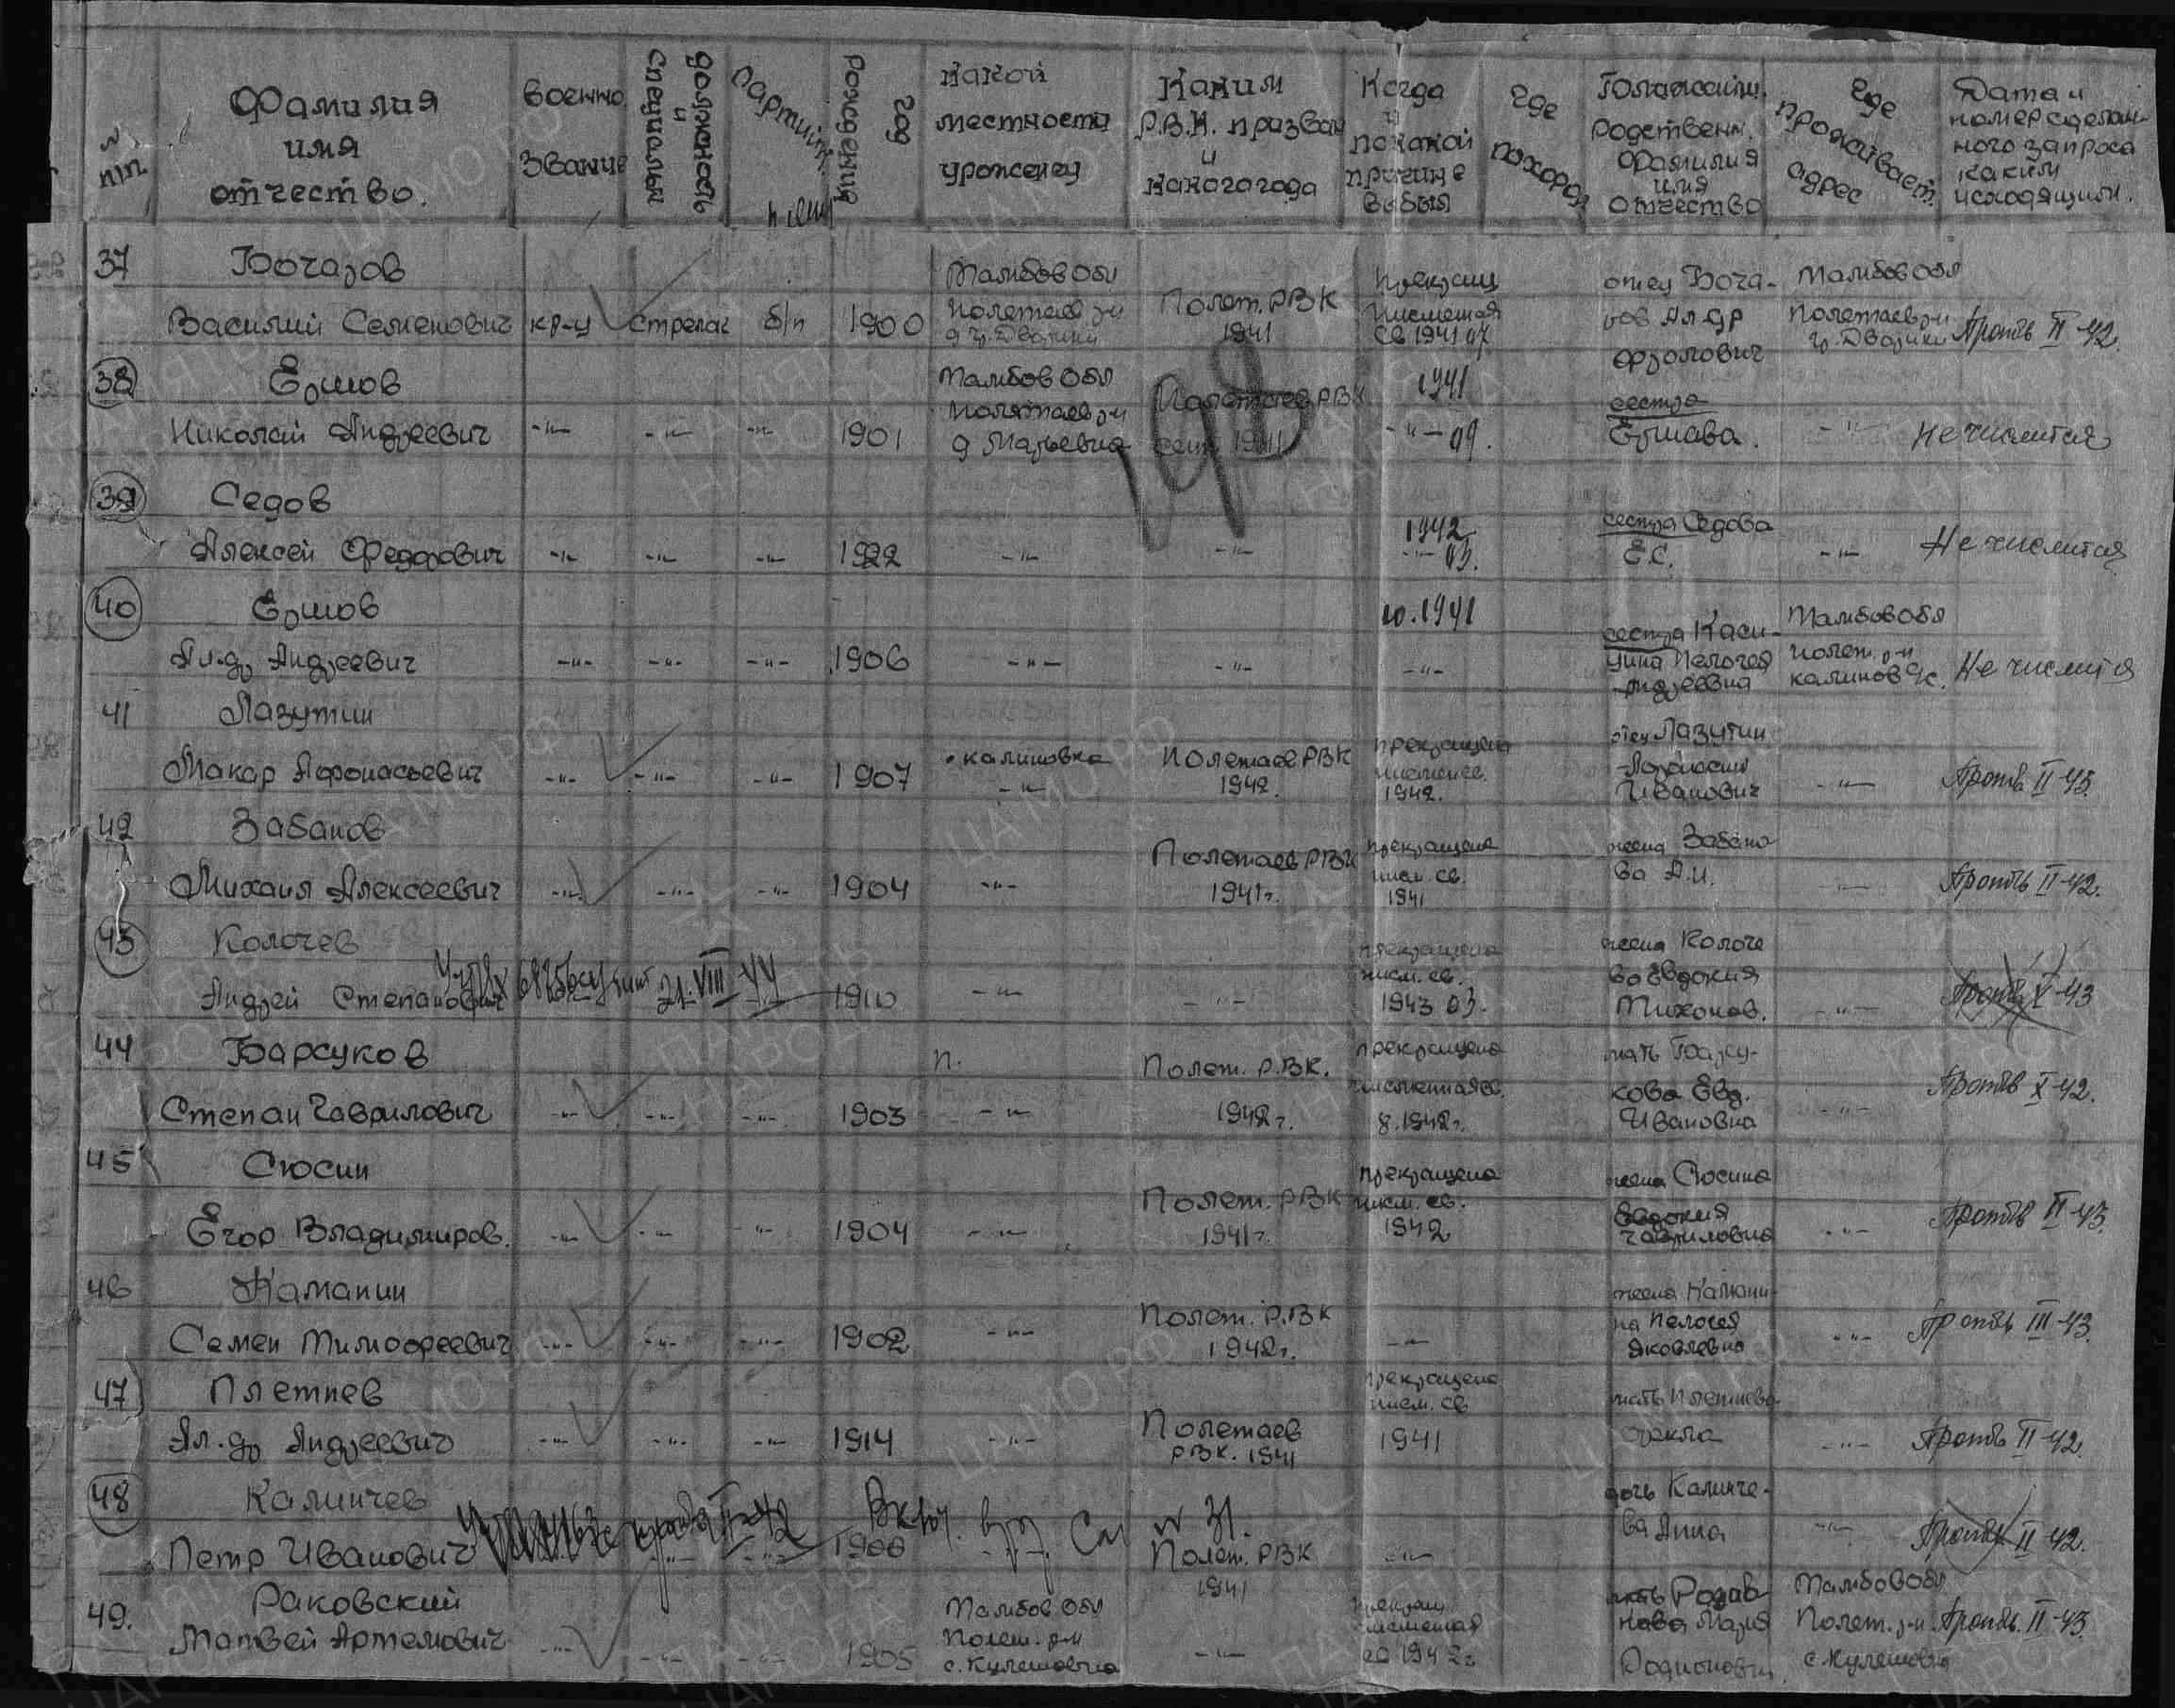 № п/п
Фамилия имя отчество.
Военно. Звание
должность и специальн
партийн.
год рождения
какой местности уроженец
Каким Р.В.К. призван и какого года
Когда и по какой причине выбыл
Где похорон
Ближайш. родственн. фамилия имя отчество
Где проживает. адрес
Дата и номер сделанного запроса каким исходящим.
37 Бочаров Тамбов Обл прекращ отец Боча- Тамбов Обл
Василий Семенович кр-ц стрелок б/п 1900 Полетаев р-н Полет. РВК 1941 письменая св 1941 09 ров Ал др Фролович Полетаев р-н Дворики Протв II-42.
38 Ершов Тамбов Обл Полетаев РВК 1941 сестра
Николай Андреевич -"- -"- -"- 1901 Полетаев р-н д Марьевка сент 1941 -"- 09. Ершова. -"- Не числится
198
39 Седов 1942 сестра Седова
Алексей Федорович -"- -"- -"- 1922 -"- -"- -"- 03. Е.С. -"- Не числится
40 Ершов 10.1941 сестра Каси- Тамбов обл
Ал-др Андреевич -"- -"- -"- 1906 -"- -"- -"- Пелогея Андреевна полет. р-н калинов с. Не числится
41 Лазутин прекращена отец Лазутин
Макар Афонасьевич -"- -"- -"- 1907 калиновка -"- Полетаев РВК 1942. 1942. Афонасий Иванович -"- Протв II-43.
42 Забанов Полетаев РВК прекращена жена Забано
Михаил Алексеевич -"- -"- -"- 1904 -"- 1941г. писм. св. 1941 ва А.И. -"- Протв II-42.
43 Колочев прекращена жена Колоче
Андрей Степанович 21.VIII-44 1910 -"- -"- писм. св. 1943 03. ва Евдокия Тихонов. -"- Протв X-43
44 Барсуков п. Полет. Р.В.К. прекращена мать Барсу-
Степан Гаврилович -"- -"- -"- 1903 -"- 1942г. письменная св. 8.1942г. кова Евд. Ивановна -"- Протв X-42.
45 Сюсин Полет. РВК прекращена жена Сюсина
Егор Владимиров. -"- -"- -"- 1904 -"- 1941г. писм. св. 1942 Евдокия Гавриловна -"- Протв II-43
46 Каманин Полет. Р.ВК жена Камани-
Семен Тимофреевич -"- -"- -"- 1902 -"- 1942г. -"- на Пелогея Яковлевна -"- Протв III-43.
47 Плетнев прекращена писм. св мать Плетнева
Ал-др Андреевич -"- -"- -"- 1914 -"- Полетаев РВК. 1941 1941 Фекла -"- Протв II-42.
48 Калинчев Включ. см № 31. дочь Калинче-
Петр Иванович -"- -"- 1900 -"- Полет. РВК 1941 -"- ва Анна -"- Протв II-42.
49. Раковский Тамбов. Обл прекращ мать Родио- Тамбов обл
Матвей Артемович -"- -"- -"- 1905 Полет. р-н с. Кулешовка -"- письменая св 1942г нова Мария Родионовн Полет. р-н с. Кулешовка Протв. II-43.